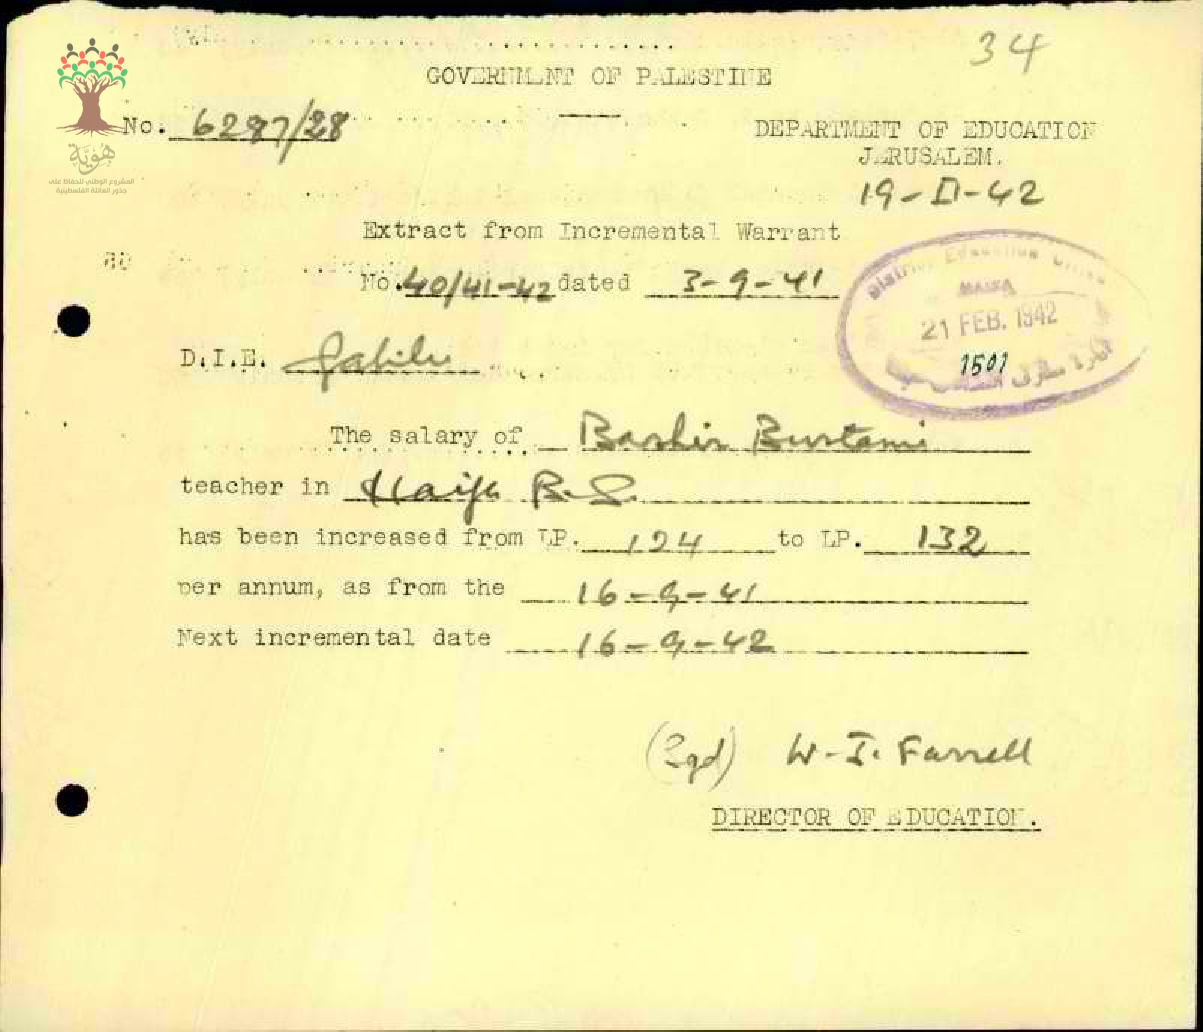 34
GOVERNMENT OF PALESTINE
No. 6287/28
DEPARTMENT OF EDUCATION
JERUSALEM.
هوية
المشروع الوطني للحفاظ على
جذور العائلة الفلسطينية
19-II-42
Extract from Incremental Warrant
No. 40/41-42 dated 3-9-41
District Education Office
HAIFA
21 FEB. 1942
1501
D.I.E. Galilee
The salary of Bashir Bustami
teacher in Haifa B.S.
has been increased from LP. 124 to LP. 132
per annum, as from the 16-9-41
Next incremental date 16-9-42
(Sgd) W. J. Farrell
DIRECTOR OF EDUCATION.